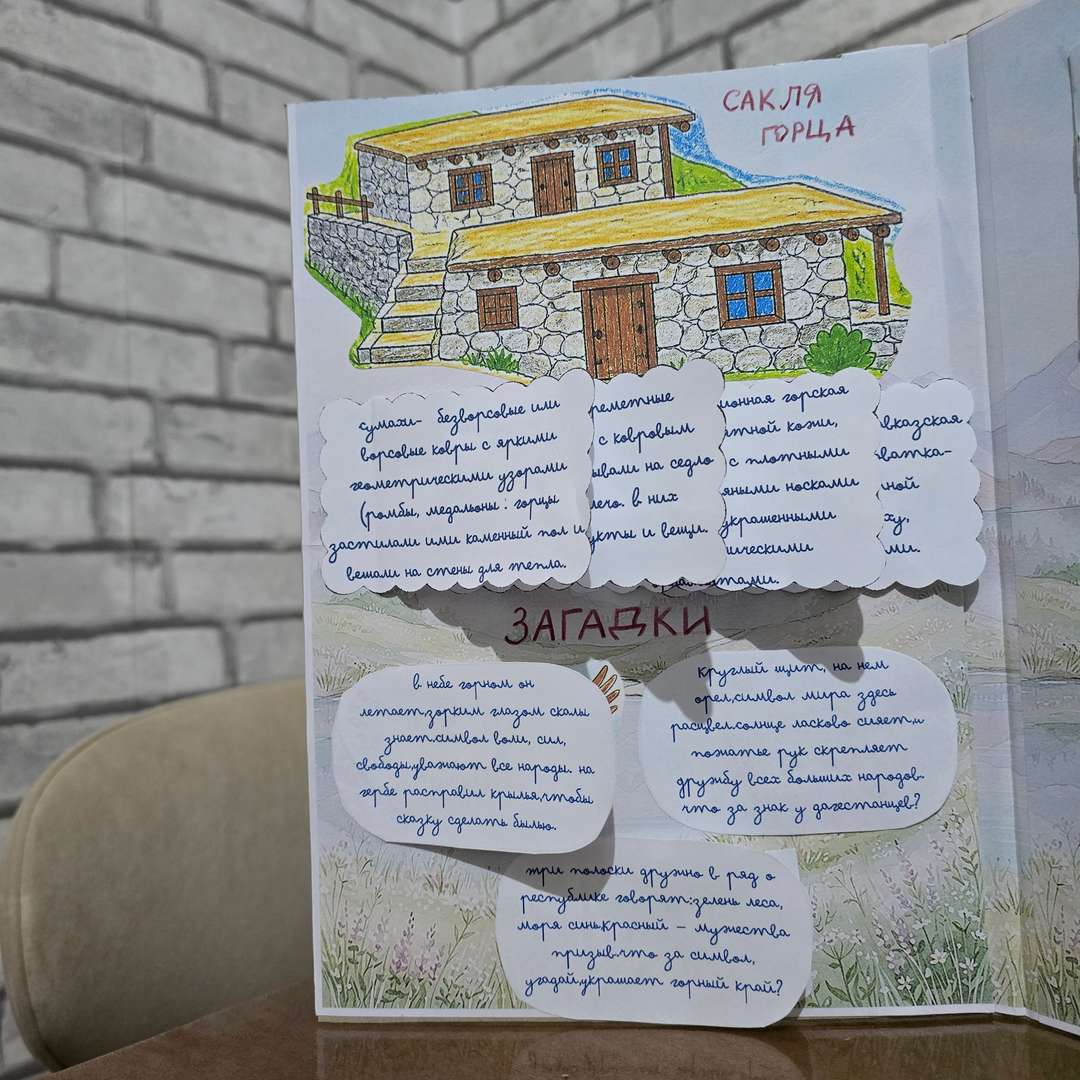 САКЛЯ
ГОРЦА
сумахи- безворсовые или
ворсовые ковры с яркими
геометрическими узорами
(ромбы, медальоны: горцы
застилали ими каменный пол и
вешали на стены для тепла.
реметные
с ковровым
ывали на седло
лечо. в них
укты и вещи.
ионная горская
тной кожи,
с плотными
яными носками
украшенными
ическими
тами.
вказская
ватка-
ной
ху,
ми.
ЗАГАДКИ
в небе горном он
летает,зорким глазом скалы
знает.символ воли, сил,
свободы,уважают все народы. на
гербе расправил крылья,чтобы
сказку сделать былью.
круглый щит, на нем
орел,символ мира здесь
расцвел.солнце ласково сияет,и
пожатье рук скрепляет
дружбу всех больших народов-
что за знак у дагестанцев?
три полоски дружно в ряд о
республике говорят:зелень леса,
моря синь,красный – мужества
призыв.что за символ,
угадай,украшает горный край?